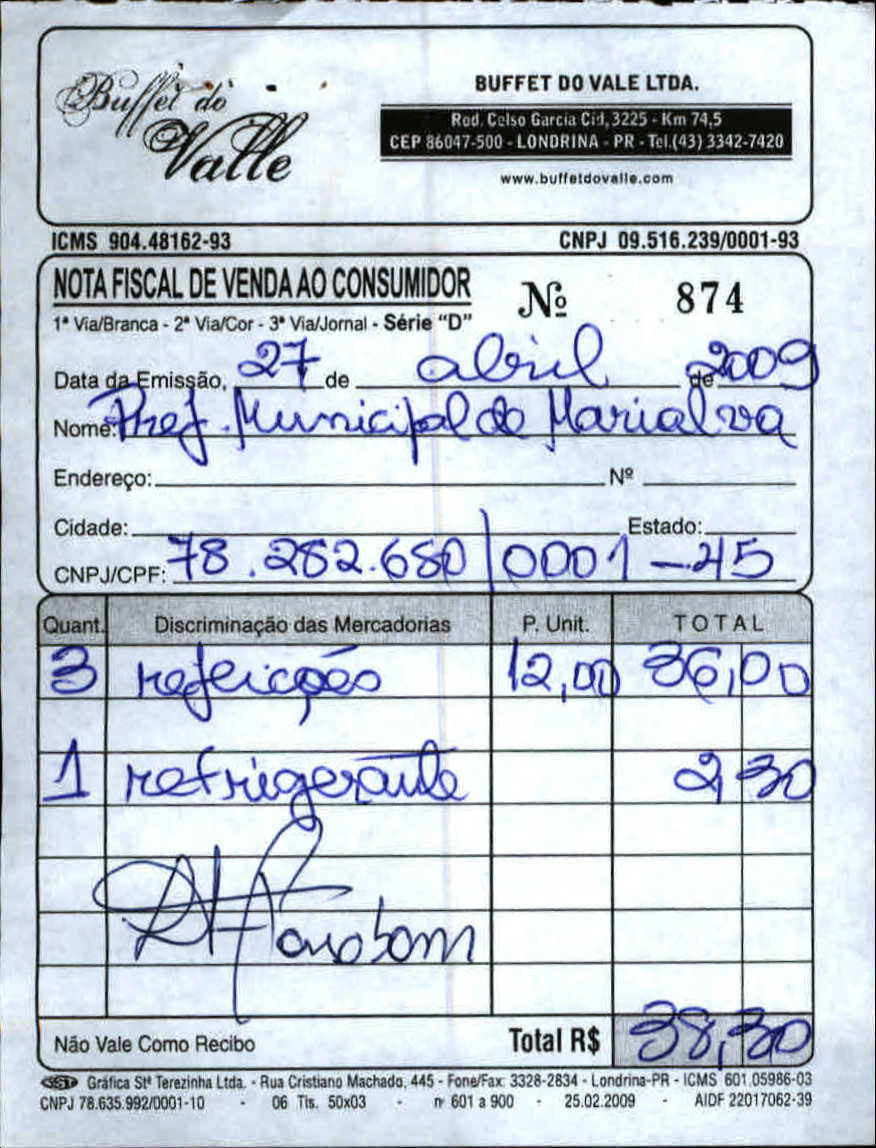 Buffet do
Valle
BUFFET DO VALE LTDA.
Rod. Celso Garcia Cid, 3225 - Km 74,5
CEP 86047-500 - LONDRINA - PR - Tel.(43) 3342-7420
www.buffetdovalle.com
ICMS 904.48162-93 CNPJ 09.516.239/0001-93
NOTA FISCAL DE VENDA AO CONSUMIDOR Nº 874
1ª Via/Branca - 2ª Via/Cor - 3ª Via/Jornal - Série "D"
Data da Emissão, 27 de abril de 2009
Nome: Pref. Municipal de Marialva
Endereço: Nº
Cidade: Estado:
CNPJ/CPF: 78.282.680/0001-45
Quant. Discriminação das Mercadorias P. Unit. TOTAL
3 refeições 12,00 36,00
1 refrigerante 2,30
Não Vale Como Recibo Total R$ 38,30
Gráfica Stª Terezinha Ltda. - Rua Cristiano Machado, 445 - Fone/Fax: 3328-2834 - Londrina-PR - ICMS 601.05986-03
CNPJ 78.635.992/0001-10 - 06 Tls. 50x03 - nº 601 a 900 - 25.02.2009 - AIDF 22017062-39